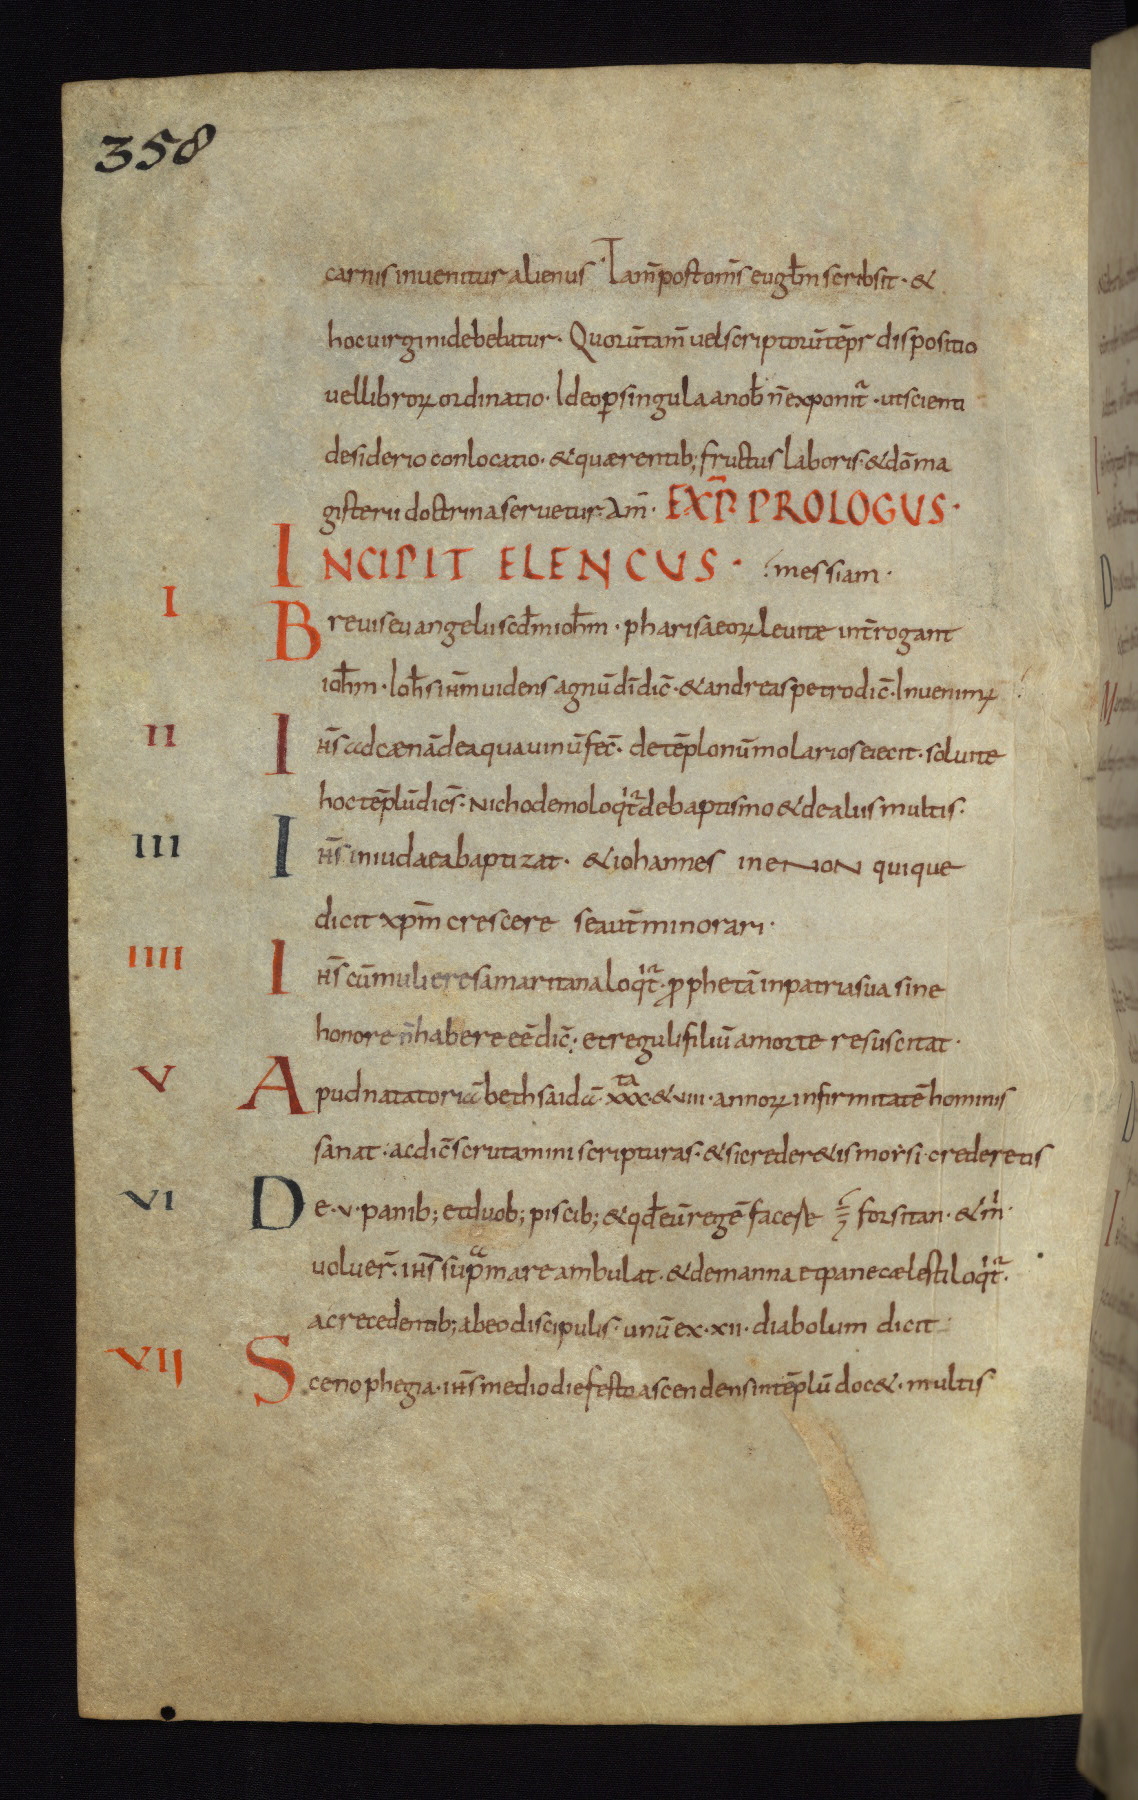 358
carnis inuenitur alienus · Tam̄ post om̄s eugl̄m scribsit · &
hoc uirgini debebatur · Quorū tam̄ uel scriptorū tēpr̄ dispositio
uel librorꝝ ordinatio · Ideo ꝑ singula a nob̄ n̄ exponit᷒ · ut scienti
desiderio conlocatio · & quærentib; fructus laboris · & dō ma
gisterii doctrina seruetur · Am̄ · EXP̄ · PROLOGUS ·
INCIPIT ELENCUS · messiam ·
I Breuis euangelii scd̄m ioh̄m · pharisaeorꝝ leuitæ int̄rogant
ioh̄m · Ioh̄s ih̄m uidens agnū dī dic̄ · & andreas petro dic̄ · Inuenimꝝ
II Ih̄s ad cænā de aqua uinū fec̄ · de tēplo nūmolarios eiecit · soluite
hoc tēplū dic̄s · Nichodemo loqit᷒ de baptismo & de aliis multis ·
III Ih̄s in iudaea baptizat · & iohannes in eNoN quique
dicit xp̄m crescere se aut̄ minorari ·
IIII Ih̄s cū muliere samaritana loqit᷒ · ꝓphetā in patria sua sine
honore n̄ habere eē dic̄ ; et reguli filiū a morte resuscitat ·
V Apud natatoriā bethsaidā · xxx ta · & viii · annorꝝ infirmitatē hominis
sanat · ac dic̄ scrutamini scripturas · & si creder&is morsi · crederetis
VI De · v · panib; et duob; piscib; & qd̄ eū regē facere forsitan · & m̄ ·
uoluer̄ · ih̄s sup̄ mare ambulat · & de manna et pane cælesti loqit᷒ ·
ac recedentib; ab eo discipulis · unū ex · xii · diabolum dicit
VII Scenophegia · ih̄s medio die festo ascendens in tēplū doc& · multis